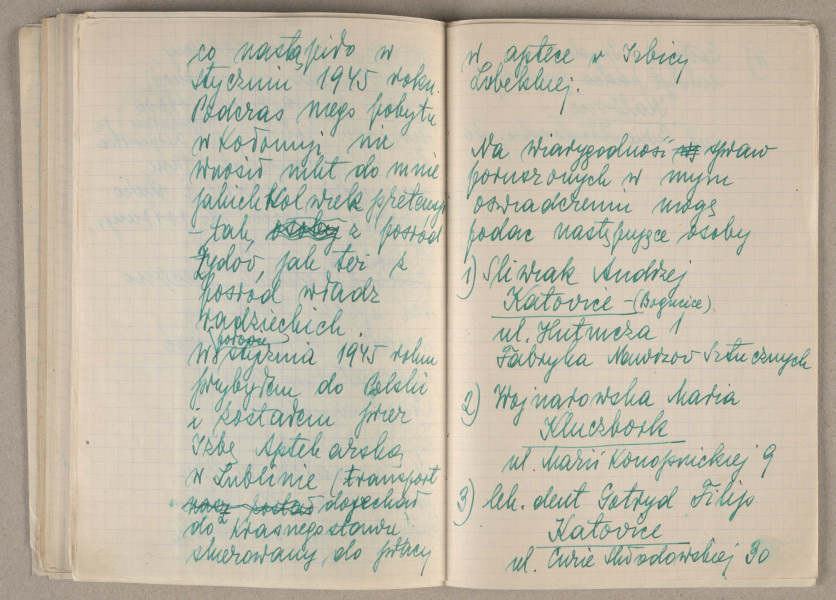 co nastąpiło w
styczniu 1945 roku.
Podczas mego pobytu
w Kołomyji nie
wnosił nikt do mnie
jakichkolwiek pretensji
– tak, osoby z pośród
Żydów, jak też z
pośród władz
radzieckich.
W styczniu 1945 roku
przybyłem do Polski
i zostałem przez
Izbę Aptekarską
w Lublinie (transport
nasz został dojechał
do Krasnegostawu)
skierowany do pracy
w aptece w Izbicy
Lubelskiej.
Na wiarygodność spraw
poruszonych w mym
oświadczeniu mogę
podać następujące osoby
1) Śliwiak Andrzej
Katowice – (Bogucice)
ul. Hutnicza 1
Fabryka Nawozów Sztucznych
2) Wojnarowska Maria
Kluczbork
ul. Marii Konopnickiej 9
3) lek. dent Gotryd Filip
Katowice
ul. Curie Skłodowskiej 30